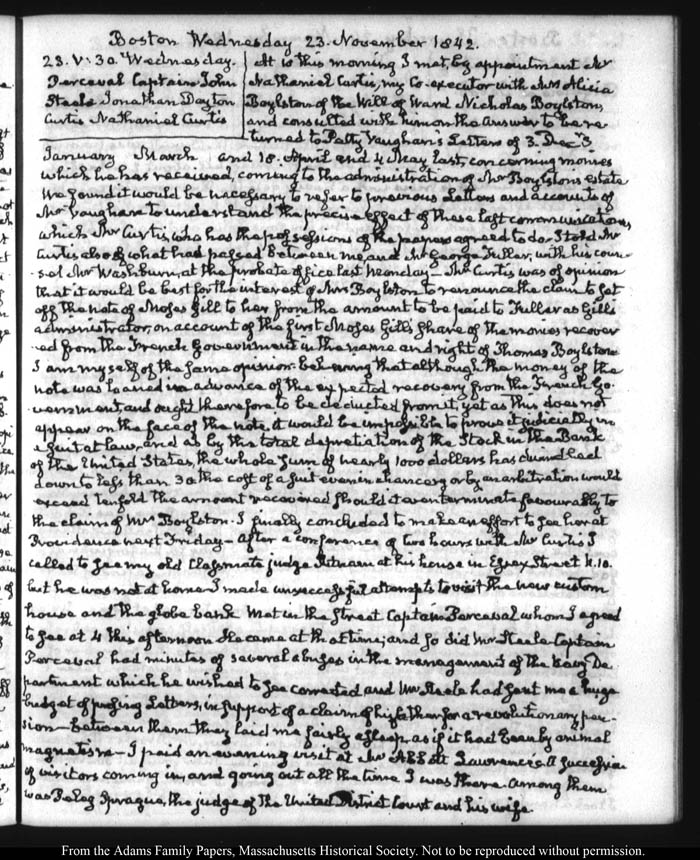 Boston Wednesday 23. November 1842.
23. V: 30. Wednesday.
Perceval Captain John
Steele Jonathan Dayton
Curtis Nathaniel Curtis
It is this morning I met, by appointment Mr
Nathaniel Curtis, my Co-executor with Mrs Alicia
Boylston of the Will of Ward Nicholas Boylston,
and consulted with him on the answer to be re-
turned to Petty Vaughan's Letters of 3. Decr
January March and 18. April and 4 May last, concerning monies
which he has received, coming to the administration of Mr Boylston's estate
We found it would be necessary to refer to previous Letters and accounts of
Mr Vaughan to understand the precise effect of these last communications,
which Mr Curtis, who has the possessions of the papers agreed to do. I told Mr
Curtis also of what had passed between me and Mr George Fuller, with his coun-
sel Mr Washburn, at the probate office last Monday— Mr Curtis was of opinion
that it would be best for the interest of Mrs Boylston to renounce the claim to set
off the note of Moses Gill to her from the amount to be paid to Fuller as Gill's
administrator, on account of the first Moses Gill's share of the monies recover
ed from the French Government in the name and right of Thomas Boylston
I am myself of the same opinion. believing that although the money of the
note was loaned in advance of the expected recovery from the French Go-
vernment, and ought therefore to be deducted from it, yet as this does not
appear on the face of the note, it would be impossible to prove it judicially in
a suit at law, and as by the total depretiation of the Stock in the Bank
of the United States, the whole sum of nearly 1000 dollars has dwindled
down to less than 30 the cost of a suit even in chancery or by an arbitration would
exceed tenfold the amount recovered should it even terminate favourably to
the claim of Mrs Boylston. I finally concluded to make an effort to see her at
Providence next Friday— After a conference of two hours with Mr Curtis I
called to see my old Classmate judge Putnam at his house in Essex Street N. 10.
but he was not at home. I made unsuccessful attempts to visit the new custom
house and the globe bank. Met in the Street Captain Perceval whom I agreed
to see at 4 this afternoon. He came at that time; and so did Mr Steele. Captain
Perceval had minutes of several abuses in the management of the Navy De-
partment which he wished to see corrected and Mr Steele had sent me a huge
budget of prosing Letters, in support of a claim of his father for a revolutionary pen-
sion— between them they laid me fairly asleep, as if it had been by animal
magnetism— I paid an evening visit at Mr Abbott Lawrence's. A succession
of visitors coming in, and going out all the time I was there. Among them
was Peleg Sprague, the judge of the United District Court and his wife.
From the Adams Family Papers, Massachusetts Historical Society. Not to be reproduced without permission.